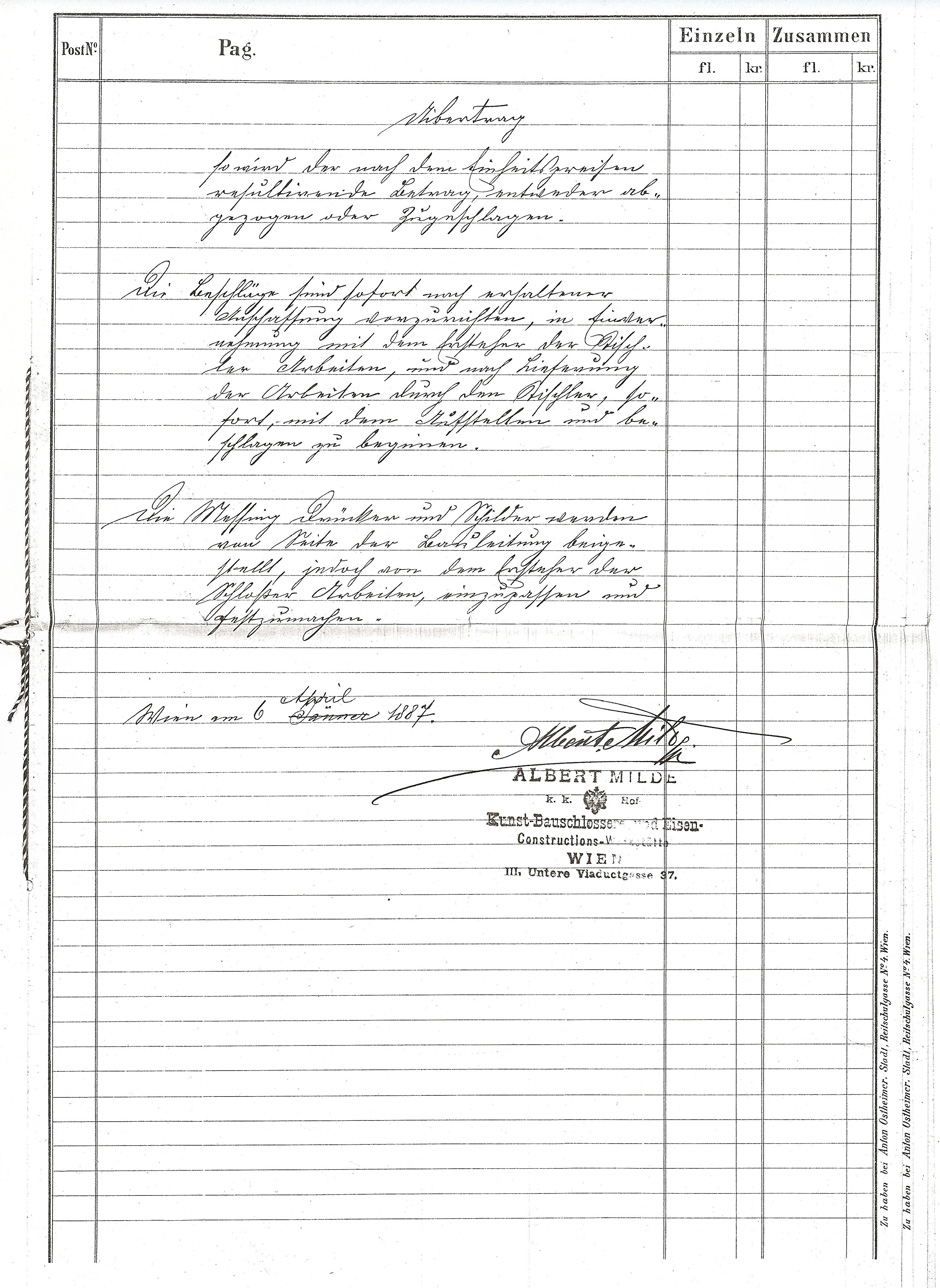 Post Nº Pag. Einzeln Zusammen
fl. kr. fl. kr.
Uibertrag
so wird der nach dem Einheitspreisen
resultirende Betrag, entweder ab-
gezogen oder Zugeschlagen.
Die Beschläge sind sofort nach erhaltener
Anschaffung vorzurichten, in Einver-
nehmung mit dem Ersteher der Tisch-
ler Arbeiten, und nach Lieferung
der Arbeiten durch den Tischler, so-
fort, mit dem Aufstellen und be-
schlagen zu beginnen.
Die Messing Drücker und Schilder werden
von Seite der Bauleitung beige-
stellt, jedoch von dem Ersteher der
Schloßer Arbeiten, einzupassen und
festzumachen.
April
Wien am 6 Jänner 1887.
Albert Milde
ALBERT MILDE
k. k. Hof
Kunst-Bauschlosser und Eisen-
Constructions-
WIEN
III. Untere Viaductgasse 37.
Zu haben bei Anton Ostheimer. Stadt, Reitschulgasse Nº 4. Wien.
Zu haben bei Anton Ostheimer. Stadt, Reitschulgasse Nº 4. Wien.